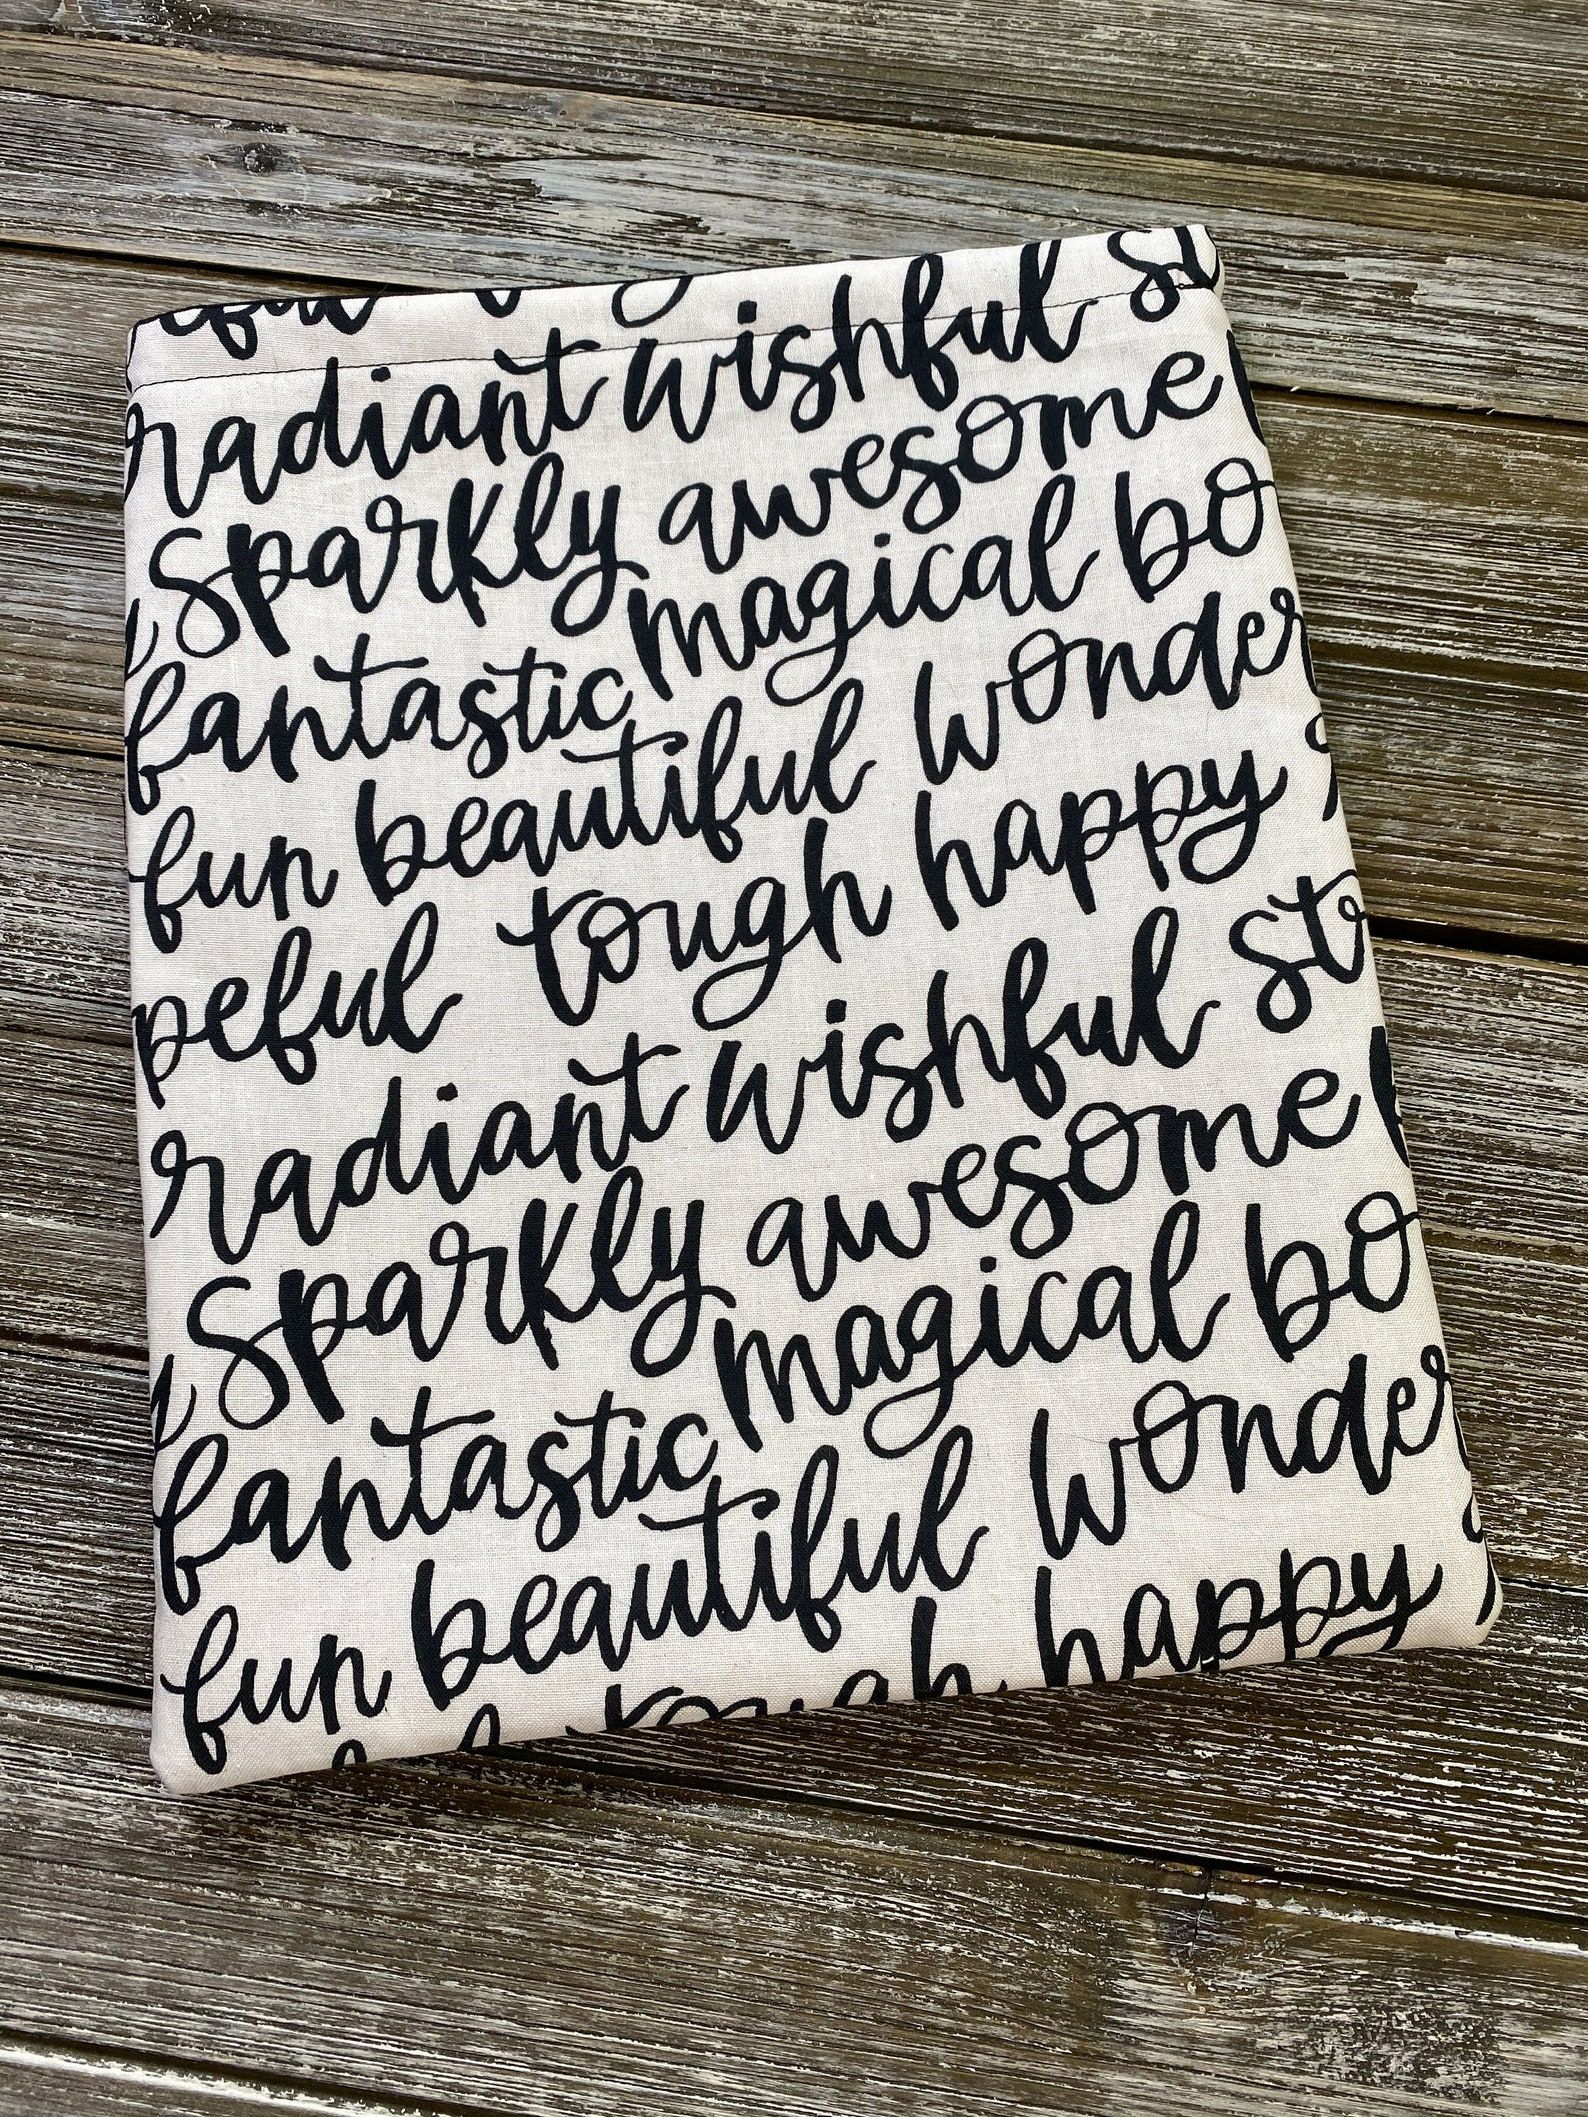 radiant wishful
sparkly awesome
fantastic magical bo
fun beautiful wonder
peful tough happy
radiant wishful st
sparkly awesome
fantastic magical bo
fun beautiful wonder
tough happy